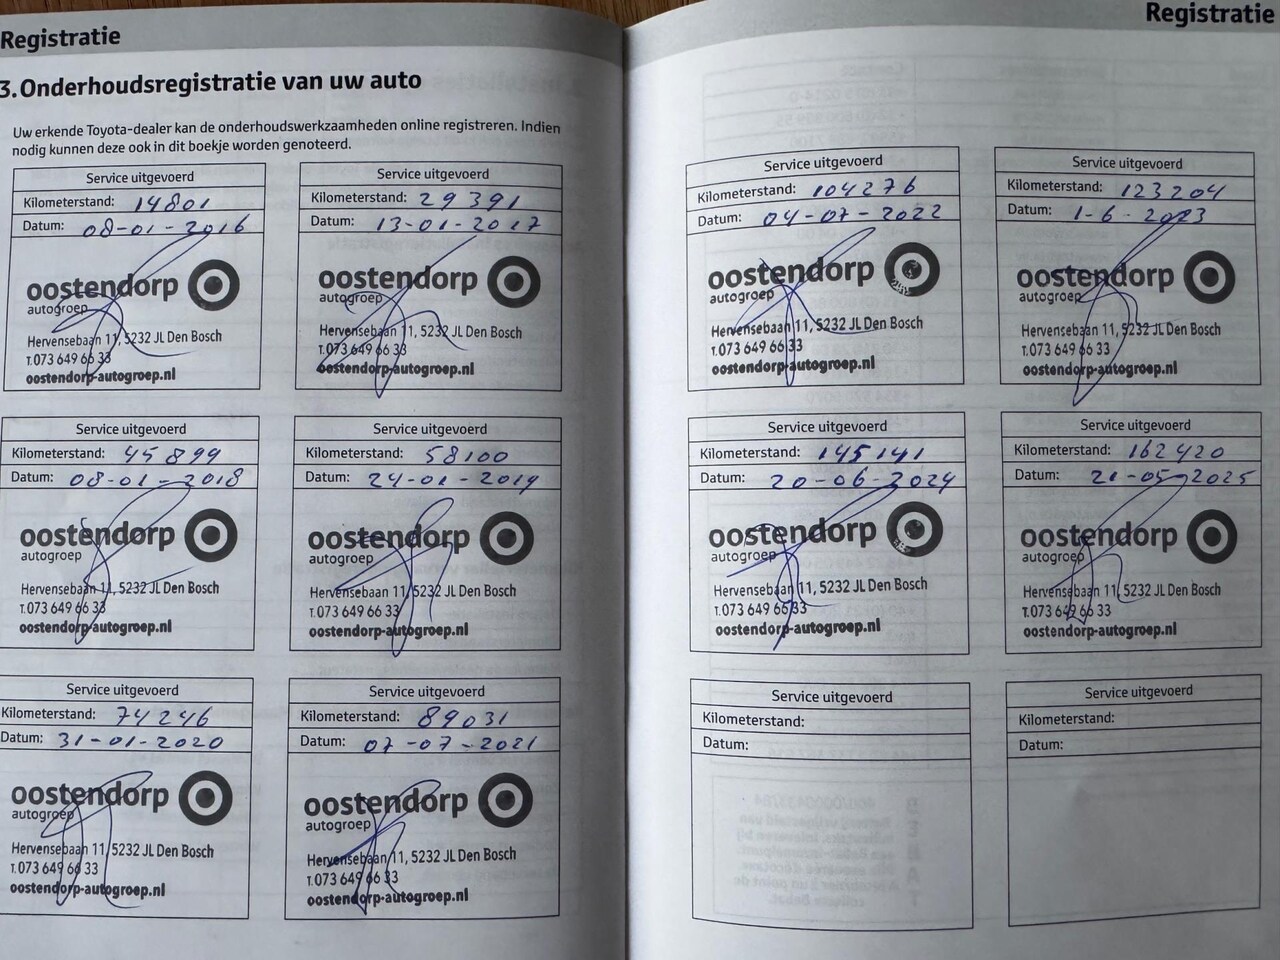 Registratie
3. Onderhoudsregistratie van uw auto
Uw erkende Toyota-dealer kan de onderhoudswerkzaamheden online registreren. Indien
nodig kunnen deze ook in dit boekje worden genoteerd.
Service uitgevoerd
Kilometerstand: 14801
Datum: 08-01-2016
oostendorp
autogroep
Hervensebaan 11, 5232 JL Den Bosch
T.073 649 66 33
oostendorp-autogroep.nl
Service uitgevoerd
Kilometerstand: 29391
Datum: 13-01-2017
oostendorp
autogroep
Hervensebaan 11, 5232 JL Den Bosch
T.073 649 66 33
oostendorp-autogroep.nl
Service uitgevoerd
Kilometerstand: 45899
Datum: 08-01-2018
oostendorp
autogroep
Hervensebaan 11, 5232 JL Den Bosch
T.073 649 66 33
oostendorp-autogroep.nl
Service uitgevoerd
Kilometerstand: 58100
Datum: 24-01-2019
oostendorp
autogroep
Hervensebaan 11, 5232 JL Den Bosch
T.073 649 66 33
oostendorp-autogroep.nl
Service uitgevoerd
Kilometerstand: 74246
Datum: 31-01-2020
oostendorp
autogroep
Hervensebaan 11, 5232 JL Den Bosch
T.073 649 66 33
oostendorp-autogroep.nl
Service uitgevoerd
Kilometerstand: 89031
Datum: 07-07-2021
oostendorp
autogroep
Hervensebaan 11, 5232 JL Den Bosch
T.073 649 66 33
oostendorp-autogroep.nl
Registratie
Service uitgevoerd
Kilometerstand: 104276
Datum: 04-07-2022
oostendorp
autogroep
Hervensebaan 11, 5232 JL Den Bosch
T.073 649 66 33
oostendorp-autogroep.nl
Service uitgevoerd
Kilometerstand: 123204
Datum: 1-6-2023
oostendorp
autogroep
Hervensebaan 11, 5232 JL Den Bosch
T.073 649 66 33
oostendorp-autogroep.nl
Service uitgevoerd
Kilometerstand: 145141
Datum: 20-06-2024
oostendorp
autogroep
Hervensebaan 11, 5232 JL Den Bosch
T.073 649 66 33
oostendorp-autogroep.nl
Service uitgevoerd
Kilometerstand: 162420
Datum: 21-05-2025
oostendorp
autogroep
Hervensebaan 11, 5232 JL Den Bosch
T.073 649 66 33
oostendorp-autogroep.nl
Service uitgevoerd
Kilometerstand:
Datum:
Service uitgevoerd
Kilometerstand:
Datum: